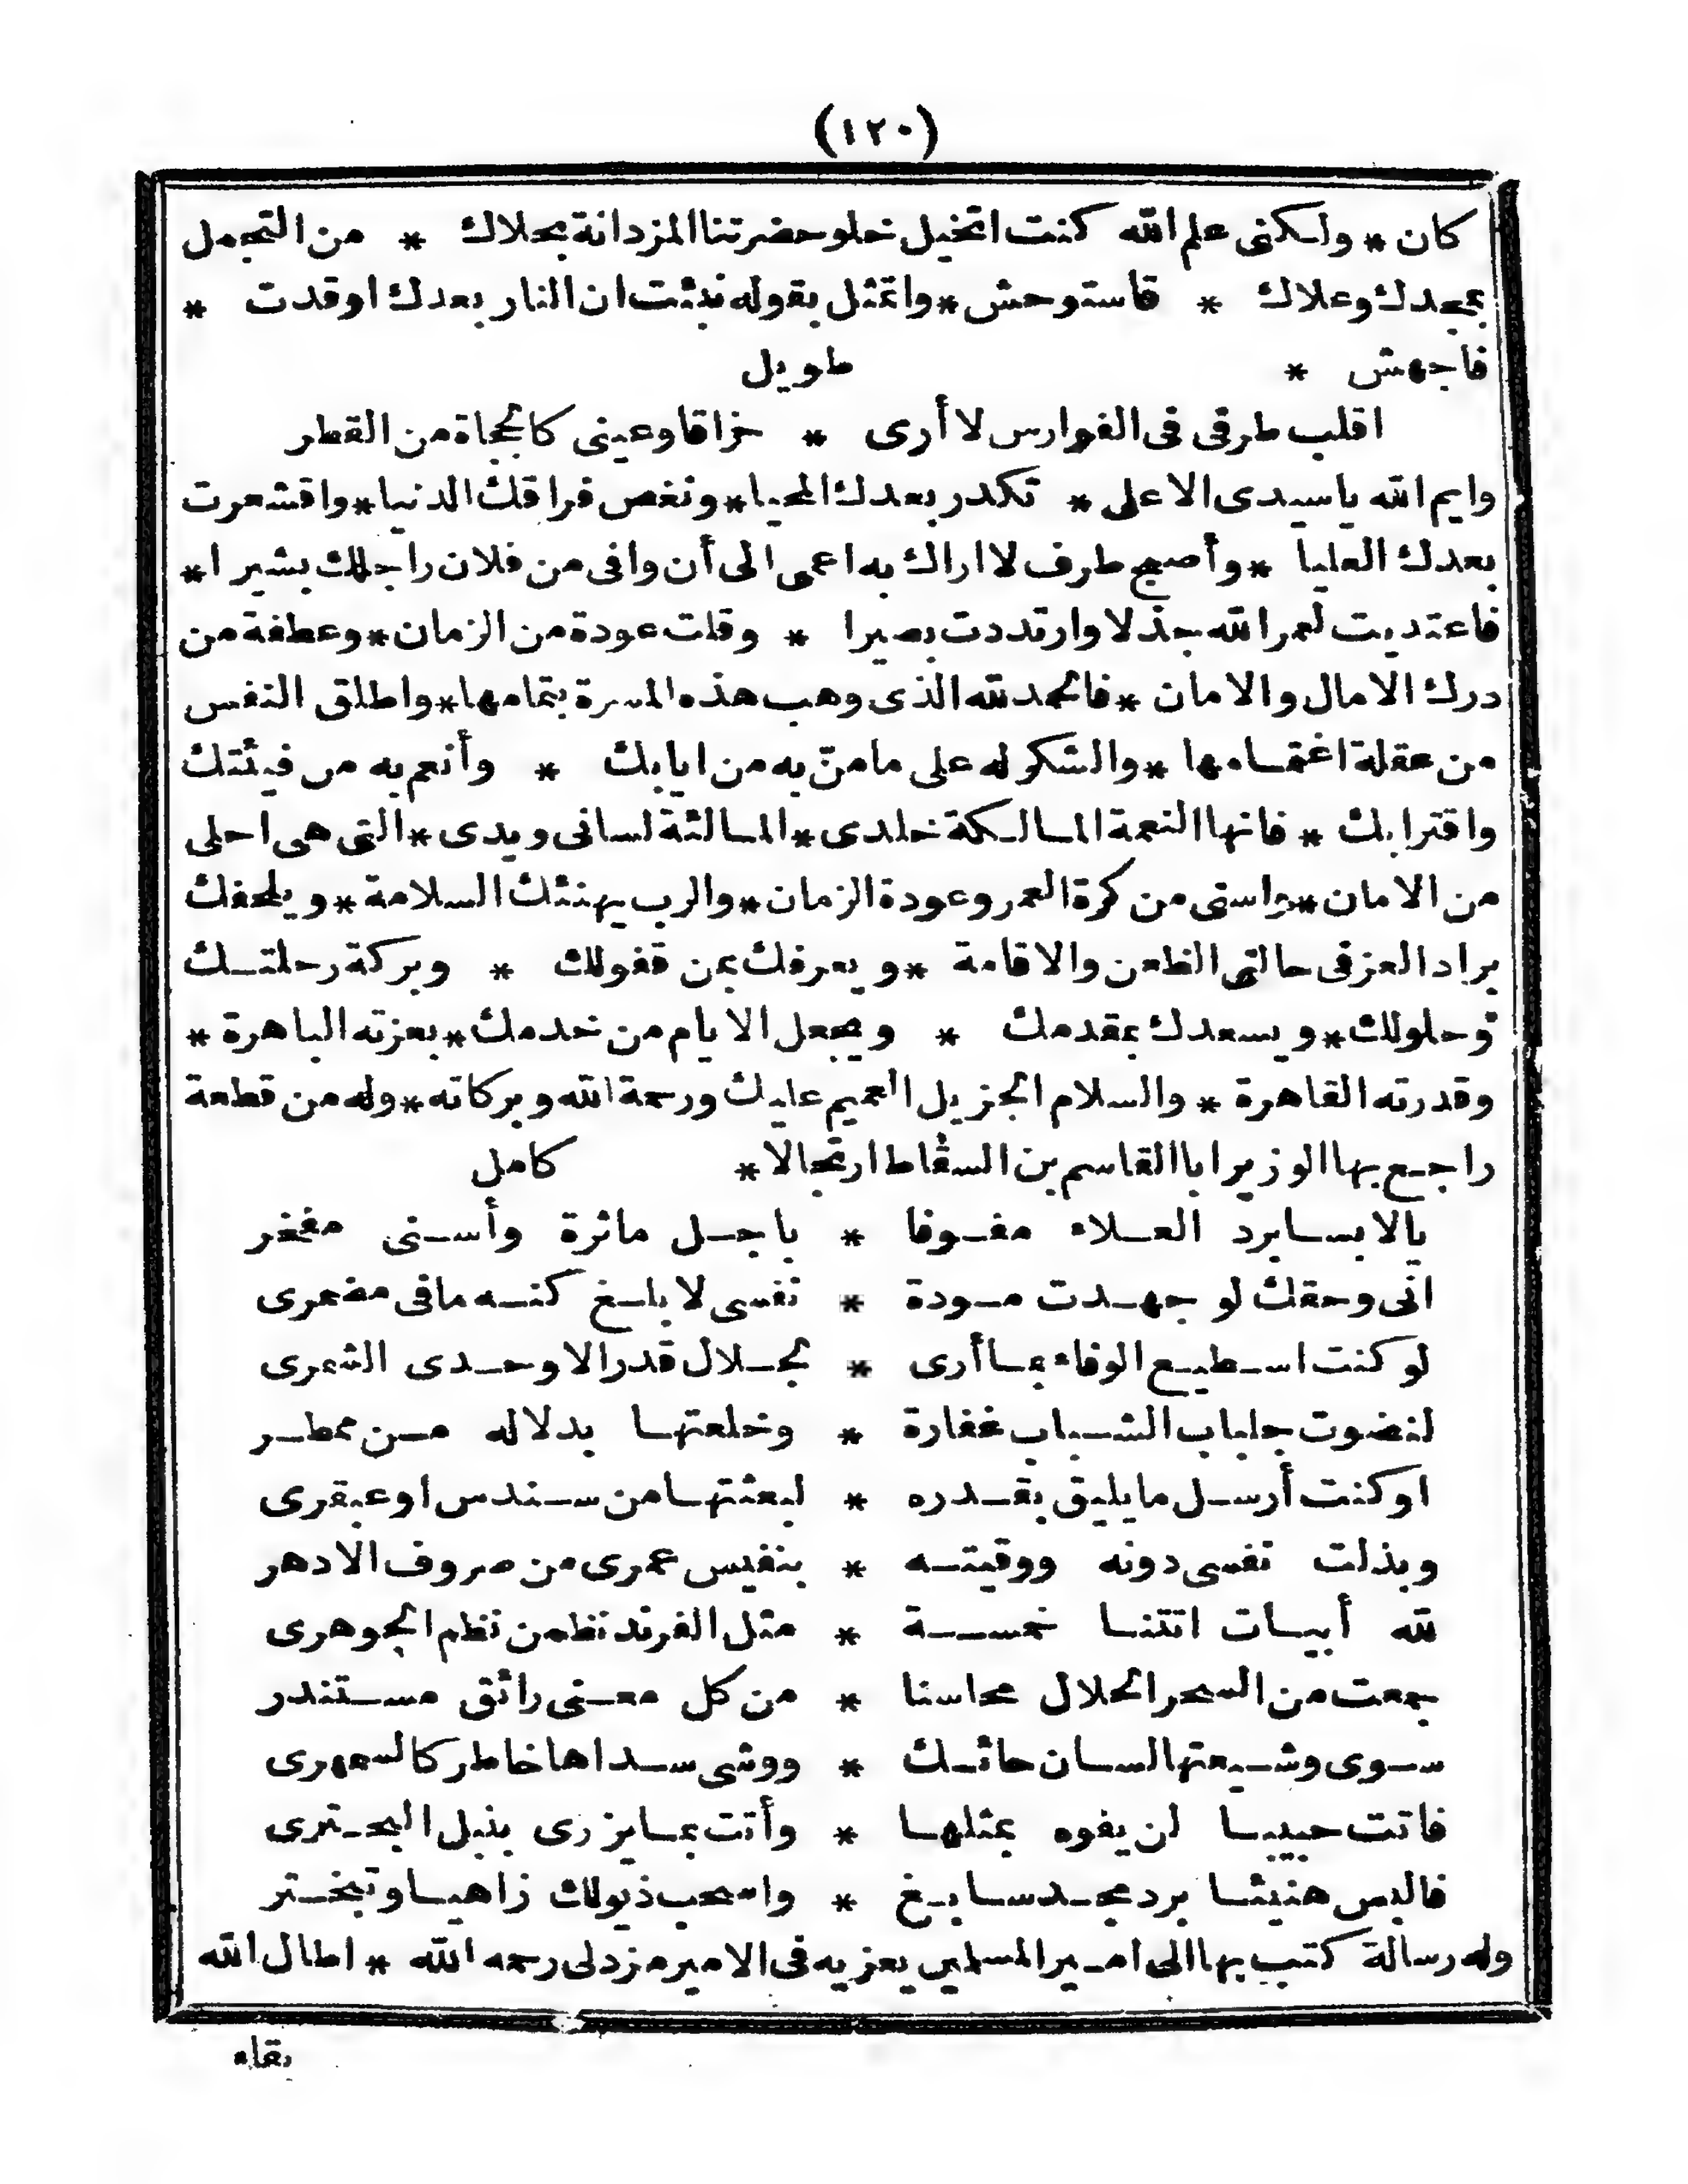 (١٢٠)
كان * ولكنى علم الله كنت اتخيل خلو حضرتنا المزدانة بحلاك * من التجمل
بمجدك وعلاك * فاستوحش * واتمثل بقوله نبئت ان النار بعدك اوقدت *
فاجهش * طويل
اقلب طرفى فى الفوارس لا أرى * حزاقا وعينى كالحجاة من القطر
وايم الله ياسيدى الاعلى * تكدر بعدك المحيا * ونغص فراقك الدنيا * واقشعرت
بعدك العليا * وأصبح طرف لا اراك به اعمى الى أن وافى من فلان راجلك بشيرا *
فاعتديت لعمر الله جذلا وارتددت بصيرا * وقلت عودة من الزمان * وعطفة من
درك الامال والامان * فالحمد لله الذى وهب هذه المسرة بتمامها * واطلق النفس
من عقلة اغتمامها * والشكر له على مامنّ به من ايابك * وأنعم به من فيئتك
واقترابك * فانها النعمة المالكة خلدى * المالئة لسانى ويدى * التى هى احلى
من الامان * واسنى من كرة العمر وعودة الزمان * والرب يهنئك السلامة * ويلحفك
براد العز فى حالتى الظعن والاقامة * ويعرفك بمن قفولك * وبركة رحلتك
وحلولك * ويسعدك بمقدمك * ويجعل الايام من خدمك * بعزته الباهرة *
وقدرته القاهرة * والسلام الجزيل العميم عليك ورحمة الله وبركاته * وله من قطعة
راجع بها الوزير ابا القاسم بن السقاط ارتجالا * كامل
يالابسا برد العلاء مفوفا * باجل ماثرة وأسنى مفخر
انى وحقك لو جهدت مودة * نفسى لابلغ كنه مافى مضمرى
لو كنت اسطيع الوفاء بما أرى * بجلال قدر الاوحدى الشمرى
لنضوت جلباب الشباب غفارة * وخلعتها بدلا له من ممطر
او كنت أرسل مايليق بقدره * لبعثتها من سندس او عبقرى
وبذلت نفسى دونه ووقيته * بنفيس عمرى من صروف الادهر
لله أبيات اتتنا خمسة * مثل الفرند نظمن نظم الجوهرى
جمعت من السحر الحلال محاسنا * من كل معنى رائق مستندر
سوى وشيعتها لسان حائك * ووشى سداها خاطر كالسمهرى
فاتت حبيبا لن يفوه بمثلها * وأتت بما يزرى بنبل البحترى
فالبس هنيئا برد مجد سابغ * واسحب ذيولك زاهيا وتبختر
وله رسالة كتب بها الى امير المسلمين يعزيه فى الامير مزدلى رحمه الله * اطال الله
بقاء